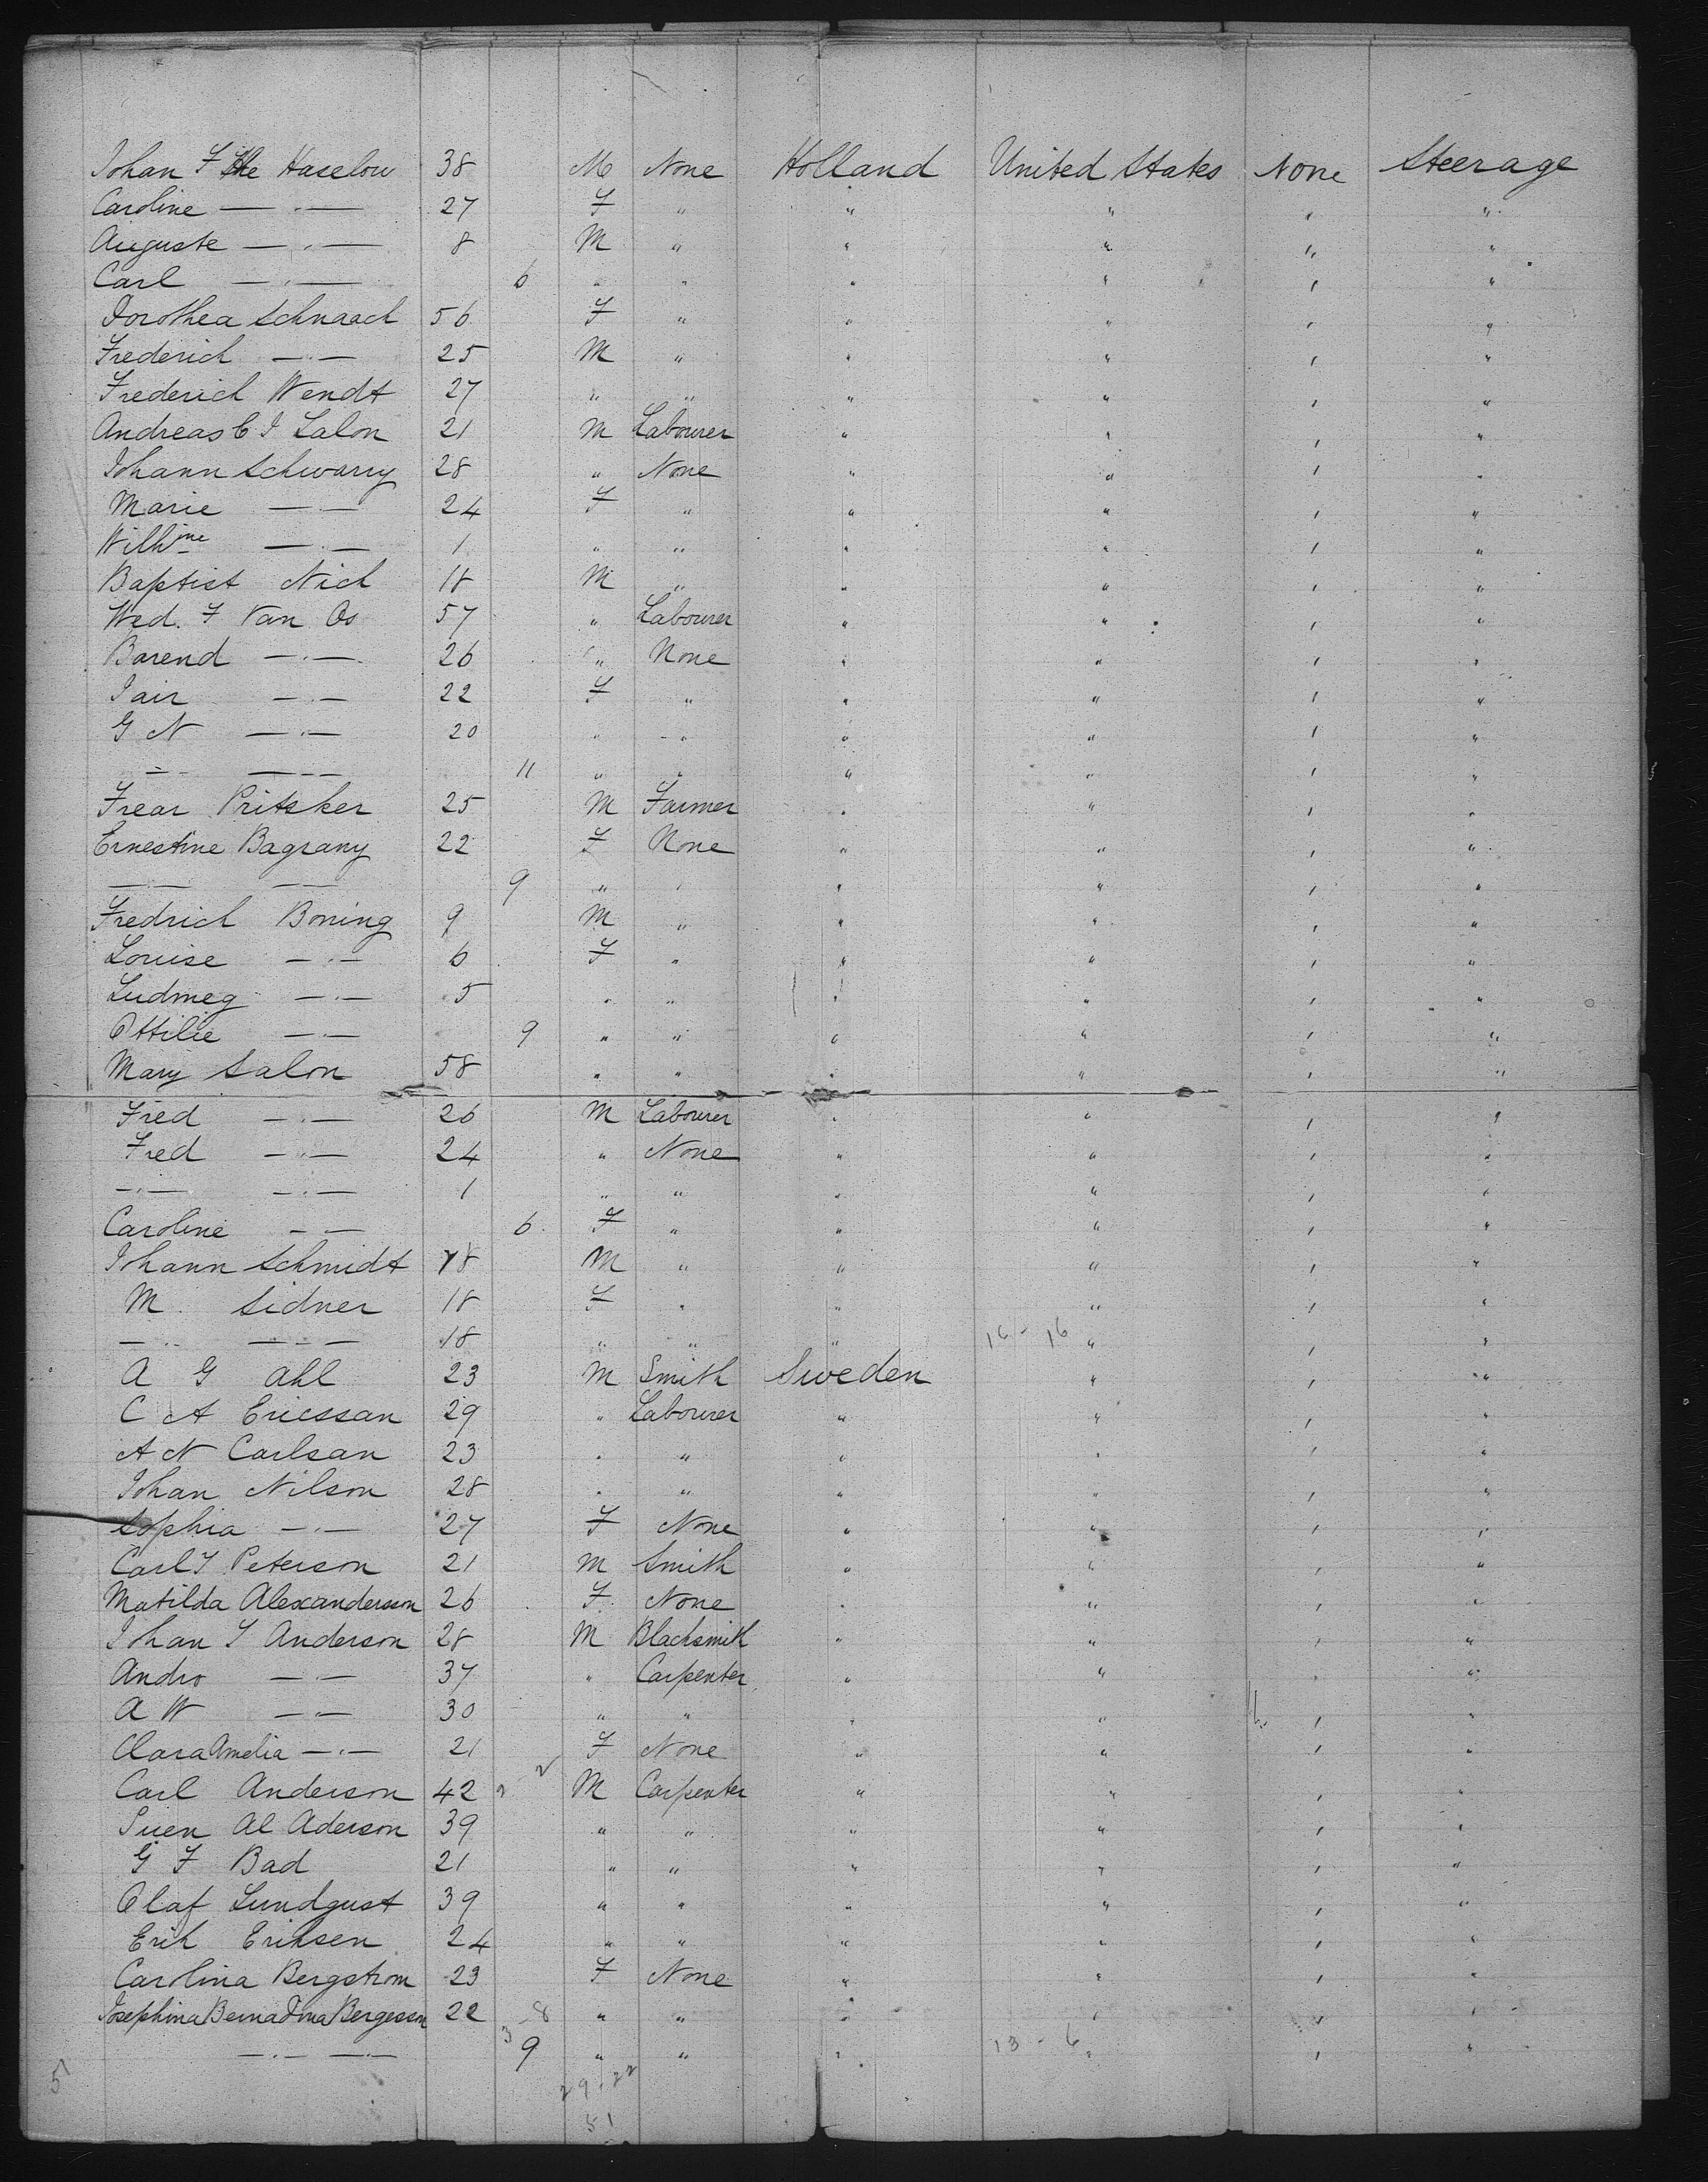 Johan F Haselow 38 M None Holland United States None Steerage
Caroline — " — 27 F " " " " "
Auguste — " — 8 M " " " " "
Carl — " — 6 " " " " " "
Dorothea Schnaach 56 F " " " " "
Frederich — " — 25 M " " " " "
Frederich Wendt 27 " " " " " "
Andreas C J Lalon 21 M Labourer " " " "
Johann Schwarry 28 " None " " " "
Marie — " — 24 F " " " " "
Wilhine — " — 1 " " " " " "
Baptist Nich 18 M " " " " "
Wed. F Van Os 57 " Labourer " " " "
Barend — " — 26 " None " " " "
Jair — " — 22 F " " " " "
G N — " — 20 " " " " " "
— " — — " — 11 " " " " " "
Frear Pritsker 25 M Farmer " " " "
Ernestine Bagrany 22 F None " " " "
— " — — " — 9 " " " " " "
Fredrich Boning 9 M " " " " "
Louise — " — 6 F " " " " "
Ludmeg — " — 5 " " " " " "
Ottilie — " — 9 " " " " " "
Mary Salon 58 " " " " " "
Fred — " — 26 M Labourer " " " "
Fred — " — 24 " None " " " "
— " — — " — 1 " " " " " "
Caroline — " — 6 F " " " " "
Johann Schmidt 18 M " " " " "
M Sidner 18 F " " " " "
— " — — " — 18 " " " 16 - 16 " " "
A G Ahl 23 M Smith Sweden " " "
C A Ericssan 29 " Labourer " " " "
A N Carlsan 23 " " " " " "
Johan Nilson 28 " " " " " "
Sophia — " — 27 F None " " " "
Carl J Peterson 21 M Smith " " " "
Matilda Alexanderson 26 F None " " " "
Johan J Anderson 28 M Blacksmith " " " "
Andro — " — 37 " Carpenter " " " "
A W — " — 30 " " " " " "
Clara Amelia — " — 21 F None " " " "
Carl Anderson 42 M Carpenter " " " "
Suen Al Aderson 39 " " " " " "
G F Bad 21 " " " " " "
Olaf Lundgust 39 " " " " " "
Erik Eriksen 24 " " " " " "
Carolina Bergstrom 23 F None " " " "
Josephina Bernadina Bergesson 22 " " " " " "
— " — — " — 9 " " " 13 - 6 " " "
51 29 . 22
51